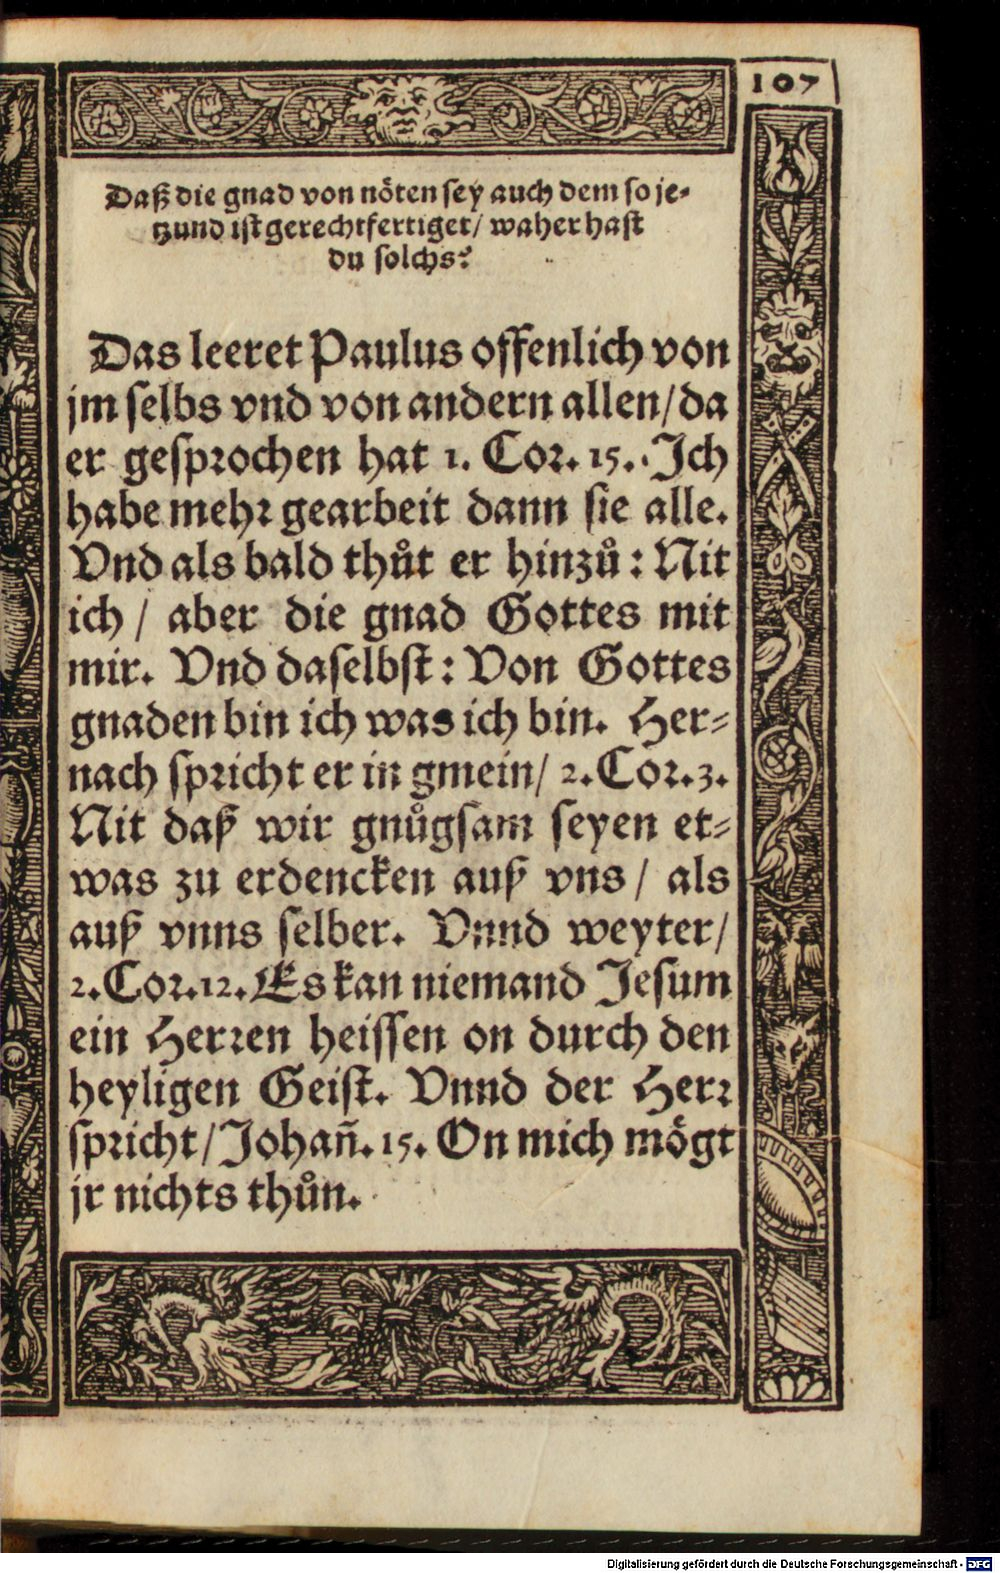 107
Daß die gnad von nöten sey auch dem so je-
tzund ist gerechtfertiget/ waher hast
du solchs?
Das leeret Paulus offenlich von
jm selbs vnd von andern allen/ da
er gesprochen hat 1. Cor. 15. Ich
habe mehr gearbeit dann sie alle.
Vnd als bald thůt er hinzů: Nit
ich / aber die gnad Gottes mit
mir. Vnd daselbst: Von Gottes
gnaden bin ich was ich bin. Her-
nach spricht er in gmein/ 2. Cor. 3.
Nit daß wir gnůgsam seyen et-
was zu erdencken auß vns / als
auß vnns selber. Vnnd weyter/
2. Cor. 12. Es kan niemand Jesum
ein Herren heissen on durch den
heyligen Geist. Vnnd der Herr
spricht/ Johañ. 15. On mich mögt
jr nichts thůn.
Digitalisierung gefördert durch die Deutsche Forschungsgemeinschaft - DFG